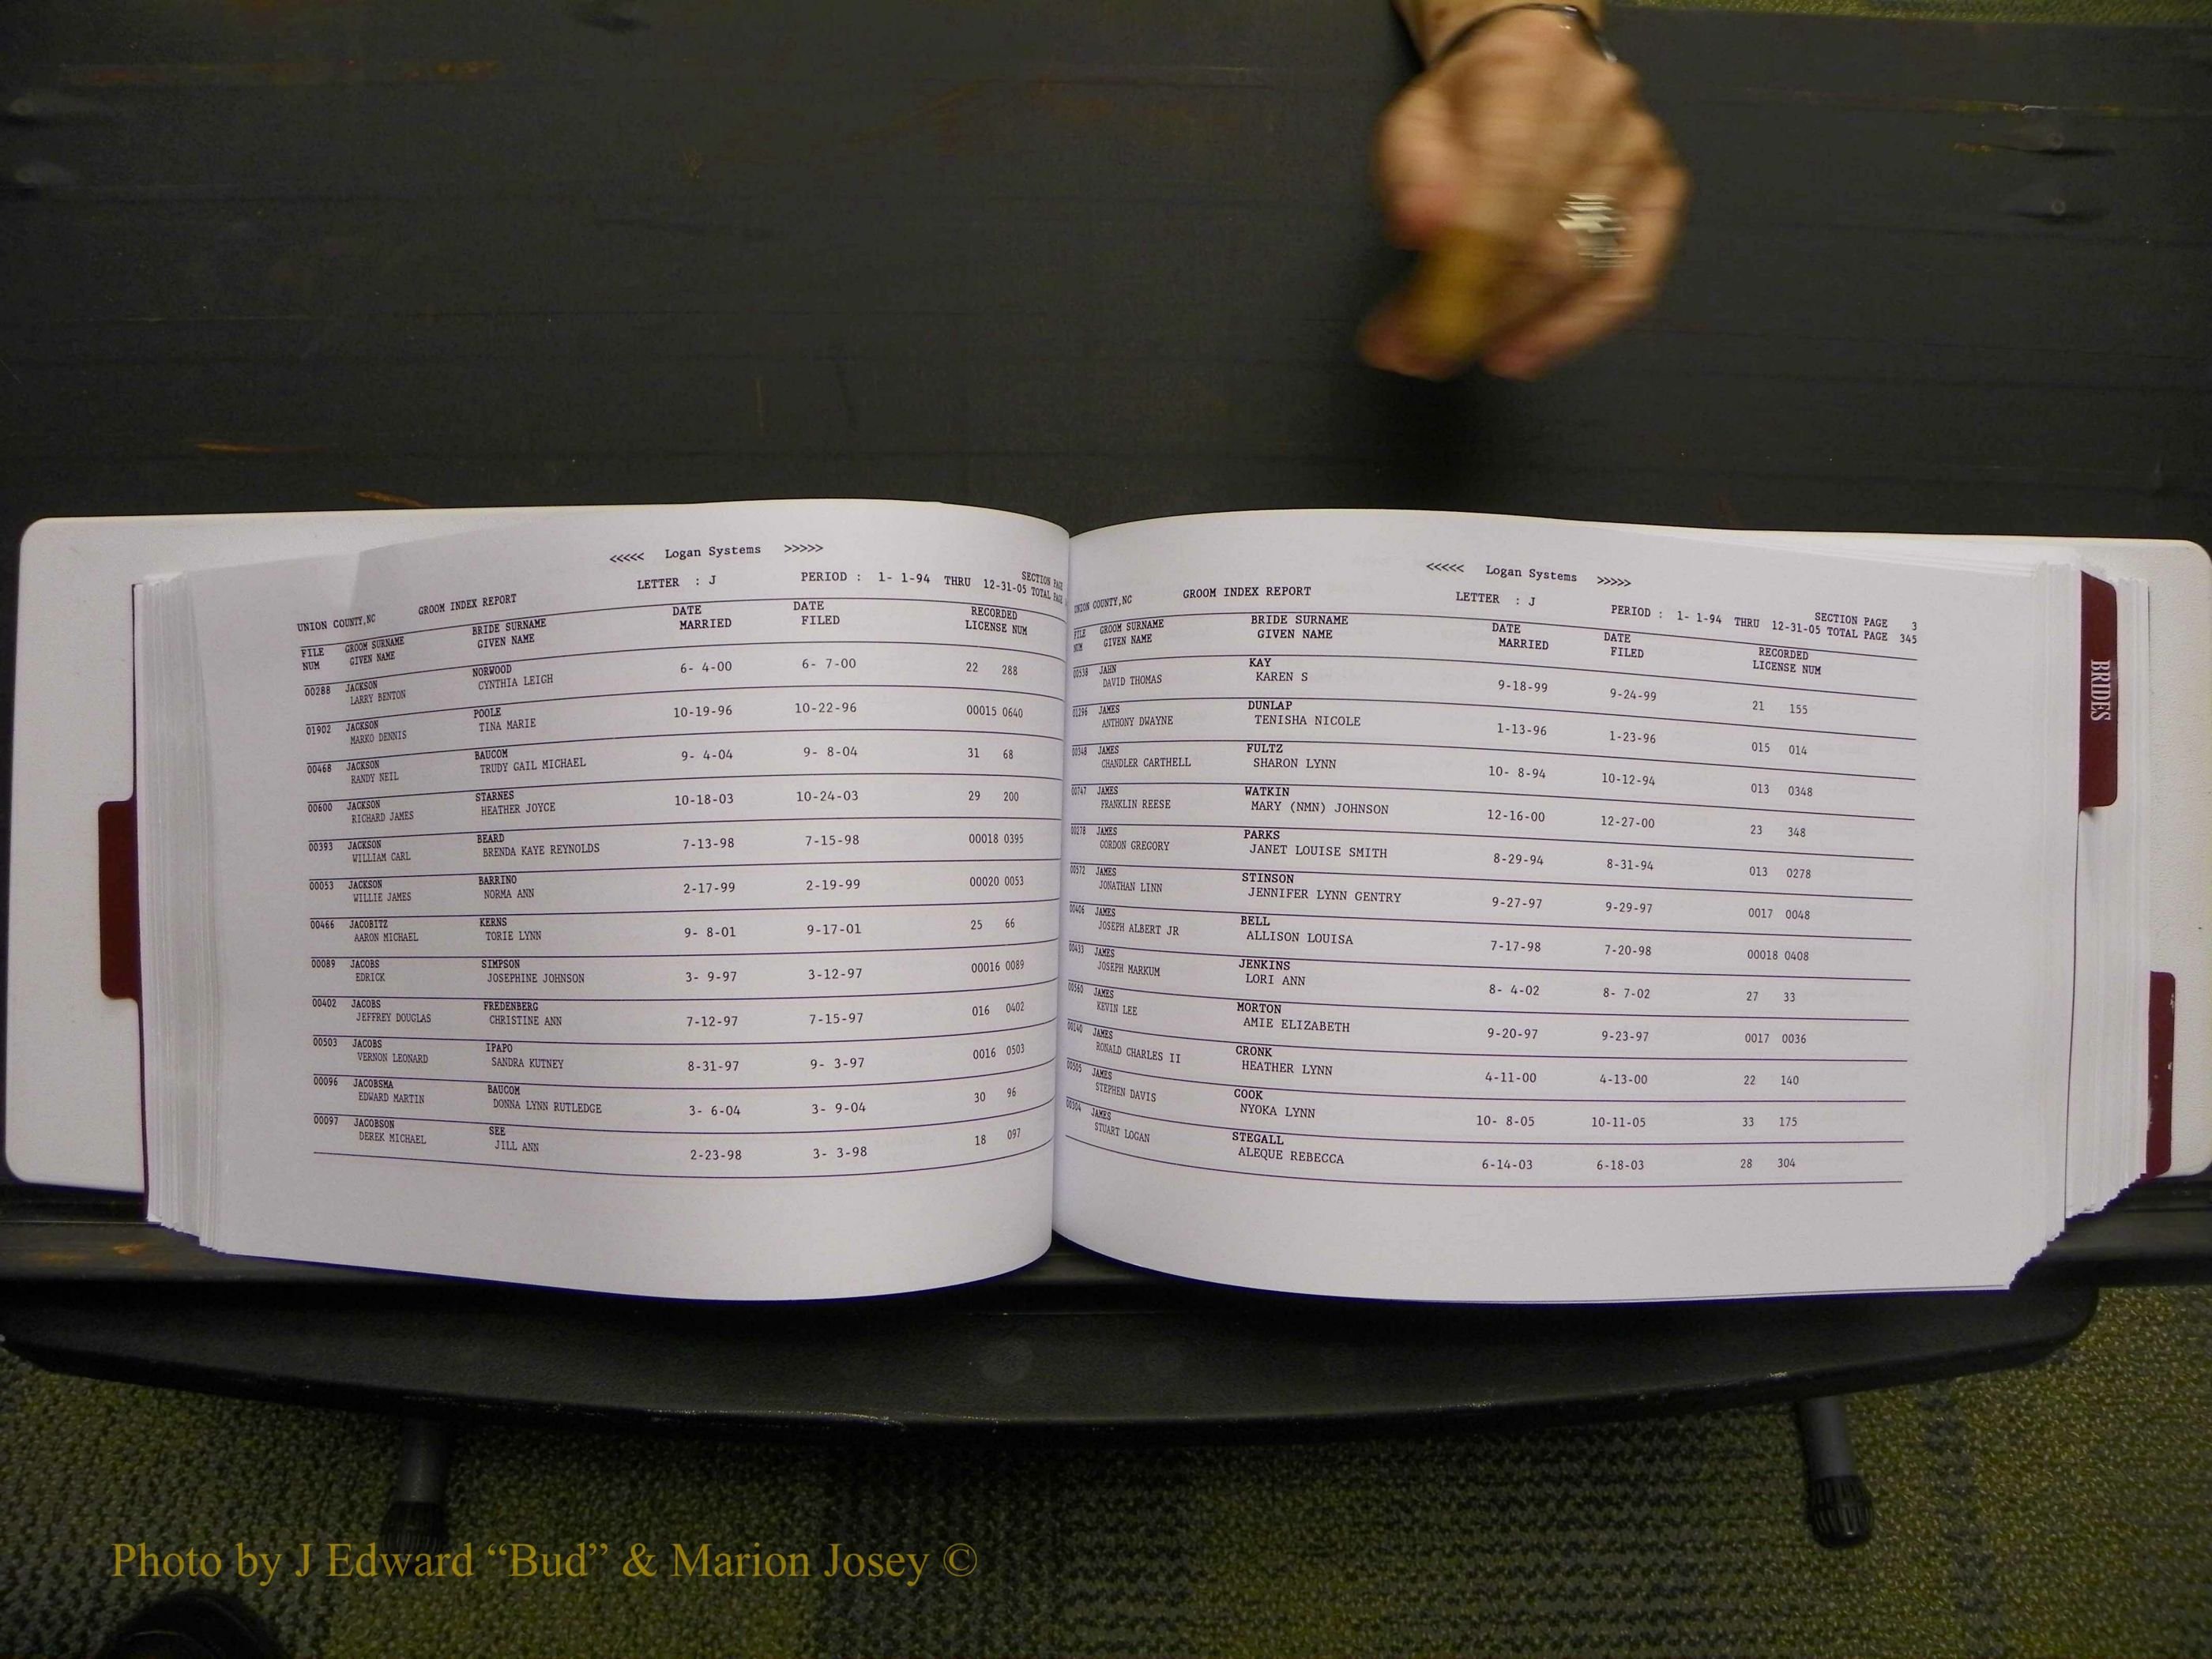 <<<<< Logan Systems >>>>>
UNION COUNTY,NC GROOM INDEX REPORT LETTER : J PERIOD : 1- 1-94 THRU 12-31-05 SECTION PAGE
TOTAL PAGE
FILE GROOM SURNAME BRIDE SURNAME DATE DATE RECORDED
NUM GIVEN NAME GIVEN NAME MARRIED FILED LICENSE NUM
00288 JACKSON NORWOOD
LARRY BENTON CYNTHIA LEIGH 6- 4-00 6- 7-00 22 288
01902 JACKSON POOLE
MARKO DENNIS TINA MARIE 10-19-96 10-22-96 00015 0640
00468 JACKSON BAUCOM
RANDY NEIL TRUDY GAIL MICHAEL 9- 4-04 9- 8-04 31 68
00600 JACKSON STARNES
RICHARD JAMES HEATHER JOYCE 10-18-03 10-24-03 29 200
00393 JACKSON BEARD
WILLIAM CARL BRENDA KAYE REYNOLDS 7-13-98 7-15-98 00018 0395
00053 JACKSON BARRINO
WILLIE JAMES NORMA ANN 2-17-99 2-19-99 00020 0053
00466 JACOBITZ KERNS
AARON MICHAEL TORIE LYNN 9- 8-01 9-17-01 25 66
00089 JACOBS SIMPSON
EDRICK JOSEPHINE JOHNSON 3- 9-97 3-12-97 00016 0089
00402 JACOBS FREDENBERG
JEFFREY DOUGLAS CHRISTINE ANN 7-12-97 7-15-97 016 0402
00503 JACOBS IPAPO
VERNON LEONARD SANDRA KUTNEY 8-31-97 9- 3-97 0016 0503
00096 JACOBSMA BAUCOM
EDWARD MARTIN DONNA LYNN RUTLEDGE 3- 6-04 3- 9-04 30 96
00097 JACOBSON SEE
DEREK MICHAEL JILL ANN 2-23-98 3- 3-98 18 097
<<<<< Logan Systems >>>>>
UNION COUNTY,NC GROOM INDEX REPORT LETTER : J PERIOD : 1- 1-94 THRU 12-31-05 SECTION PAGE 3
TOTAL PAGE 345
FILE GROOM SURNAME BRIDE SURNAME DATE DATE RECORDED
NUM GIVEN NAME GIVEN NAME MARRIED FILED LICENSE NUM
00538 JAHN KAY
DAVID THOMAS KAREN S 9-18-99 9-24-99 21 155
01296 JAMES DUNLAP
ANTHONY DWAYNE TENISHA NICOLE 1-13-96 1-23-96 015 014
00348 JAMES FULTZ
CHANDLER CARTHELL SHARON LYNN 10- 8-94 10-12-94 013 0348
00747 JAMES WATKIN
FRANKLIN REESE MARY (NMN) JOHNSON 12-16-00 12-27-00 23 348
00278 JAMES PARKS
GORDON GREGORY JANET LOUISE SMITH 8-29-94 8-31-94 013 0278
00572 JAMES STINSON
JONATHAN LINN JENNIFER LYNN GENTRY 9-27-97 9-29-97 0017 0048
00406 JAMES BELL
JOSEPH ALBERT JR ALLISON LOUISA 7-17-98 7-20-98 00018 0408
00433 JAMES JENKINS
JOSEPH MARKUM LORI ANN 8- 4-02 8- 7-02 27 33
00560 JAMES MORTON
KEVIN LEE AMIE ELIZABETH 9-20-97 9-23-97 0017 0036
00140 JAMES CRONK
RONALD CHARLES II HEATHER LYNN 4-11-00 4-13-00 22 140
00505 JAMES COOK
STEPHEN DAVIS NYOKA LYNN 10- 8-05 10-11-05 33 175
00304 JAMES STEGALL
STUART LOGAN ALEQUE REBECCA 6-14-03 6-18-03 28 304
BRIDES
Photo by J Edward “Bud” & Marion Josey ©